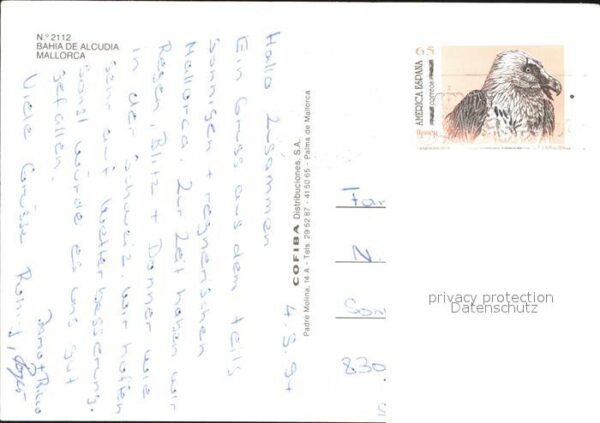 N.º 2112
BAHIA DE ALCUDIA
MALLORCA
4.9.94
Hallo zusammen
Ein Gruss aus dem teils
sonnigen + regnerischen
Mallorca. Zur Zeit haben wir
Regen, Blitz + Donner wie
in der Schweiz. Wir hoffen
sehr auf Wetterbesserung.
Sonst würde es uns gut
gefallen.
Viele Grüsse
COFIBA Distribuciones, S.A.
Padre Molina, 14 A - Tels. 29 52 87 - 41 50 65 - Palma de Mallorca
65
AMERICA ESPAÑA
correos
Fa
830
privacy protection
Datenschutz